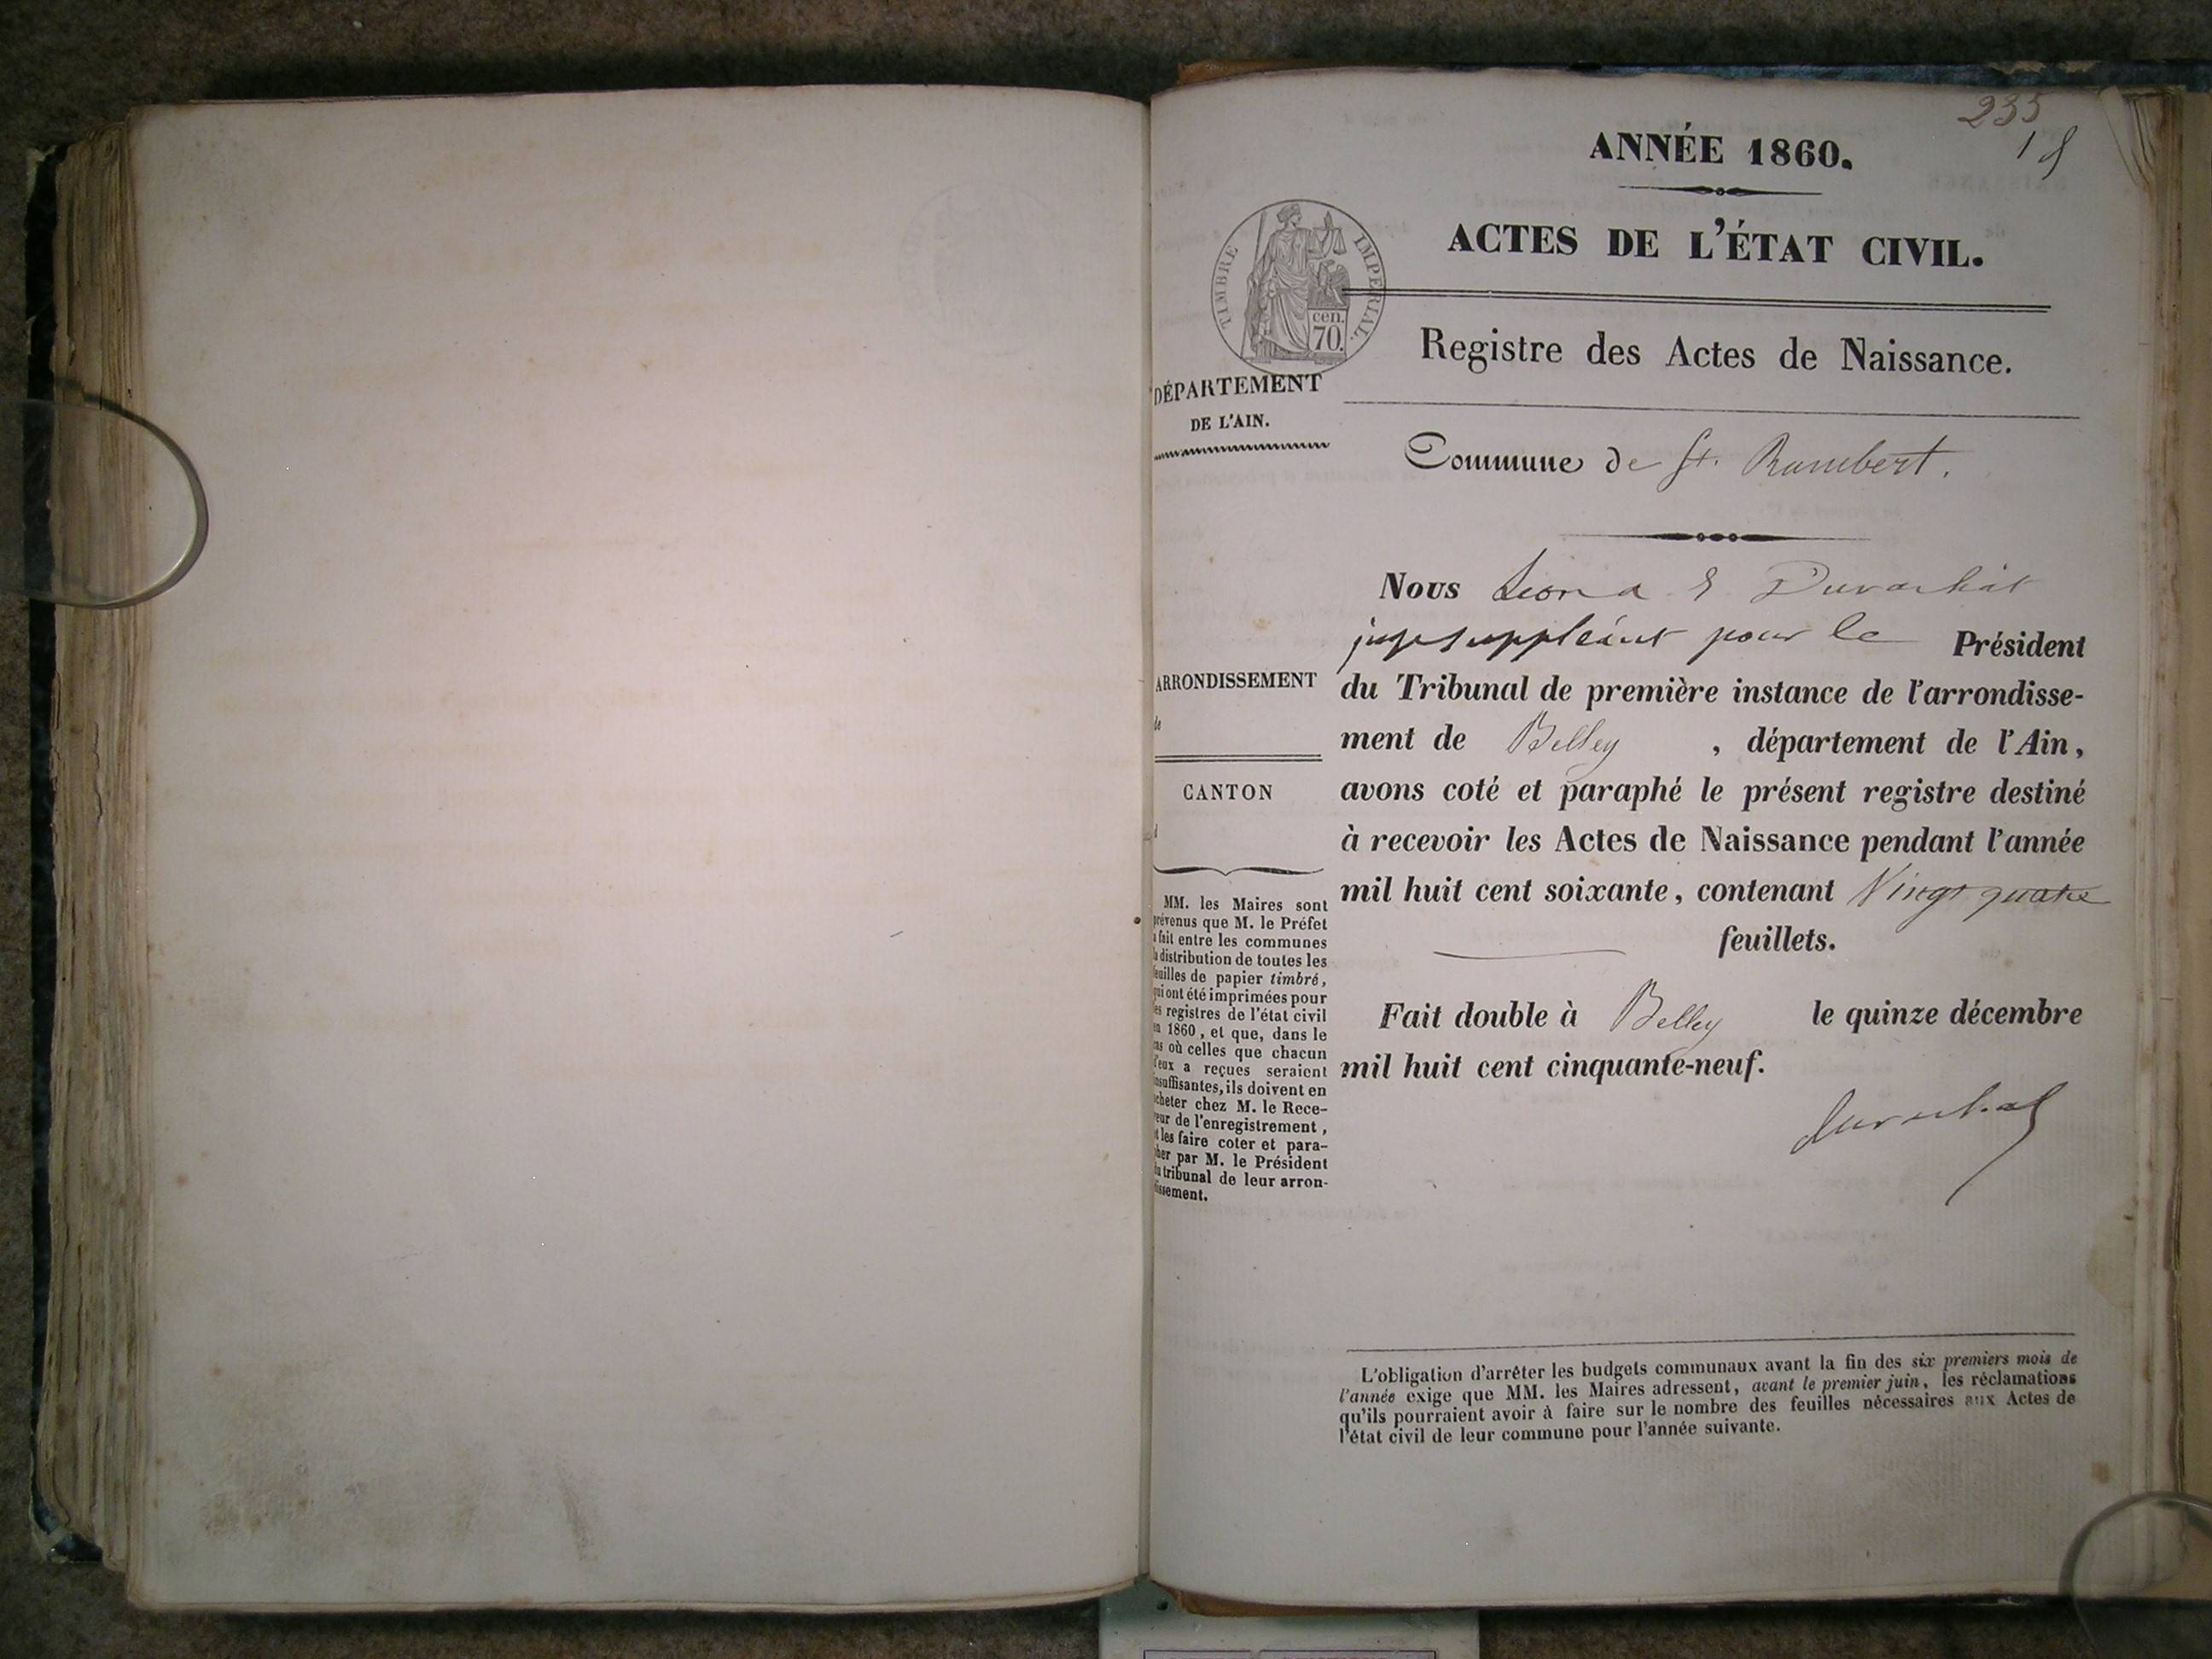 235
1
ANNÉE 1860.
ACTES DE L'ÉTAT CIVIL.
TIMBRE IMPERIAL.
cen.
70.
Registre des Actes de Naissance.
DÉPARTEMENT
DE L'AIN.
Commune de St. Rambert.
Nous Léon Duvachat
juge suppléant pour le Président
du Tribunal de première instance de l'arrondisse-
ment de Belley , département de l'Ain,
avons coté et paraphé le présent registre destiné
à recevoir les Actes de Naissance pendant l'année
mil huit cent soixante, contenant Vingt quatre
feuillets.
Fait double à Belley le quinze décembre
mil huit cent cinquante-neuf.
Duvachat
ARRONDISSEMENT
de
CANTON
d
MM. les Maires sont
prévenus que M. le Préfet
a fait entre les communes
la distribution de toutes les
feuilles de papier timbré,
qui ont été imprimées pour
les registres de l'état civil
en 1860, et que, dans le
cas où celles que chacun
d'eux a reçues seraient
insuffisantes, ils doivent en
acheter chez M. le Rece-
veur de l'enregistrement,
et les faire coter et para-
pher par M. le Président
du tribunal de leur arron-
dissement.
L'obligation d'arrêter les budgets communaux avant la fin des six premiers mois de
l'année exige que MM. les Maires adressent, avant le premier juin, les réclamations
qu'ils pourraient avoir à faire sur le nombre des feuilles nécessaires aux Actes de
l'état civil de leur commune pour l'année suivante.